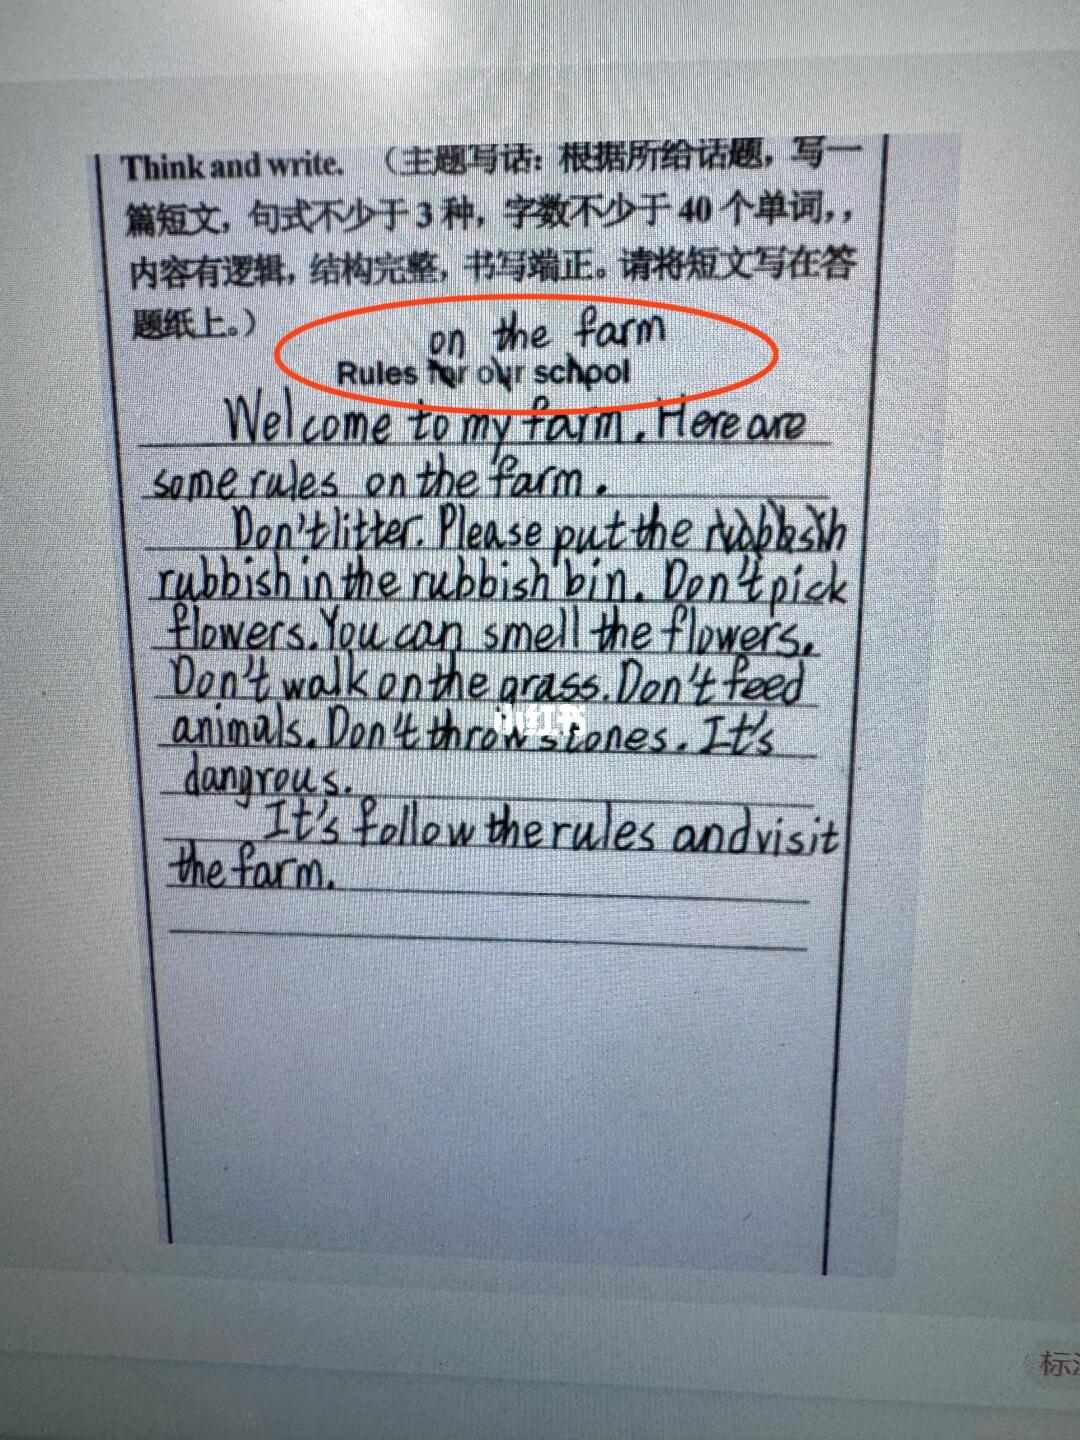 Think and write. （主题写话：根据所给话题，写一
篇短文，句式不少于 3 种，字数不少于 40 个单词，，
内容有逻辑，结构完整，书写端正。请将短文写在答
题纸上。）
on the farm
Rules for our school
Welcome to my farm. Here are
some rules on the farm.
Don't litter. Please put the
rubbish in the rubbish bin. Don't pick
flowers. You can smell the flowers.
Don't walk on the grass. Don't feed
animals. Don't throw stones. It's
小红书
dangrous.
It's follow the rules and visit
the farm.
标